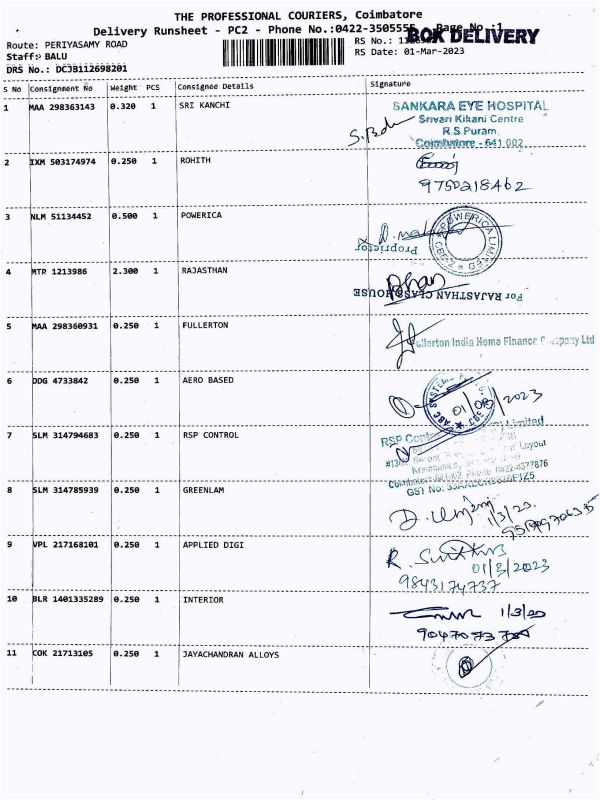 THE PROFESSIONAL COURIERS, Coimbatore
Delivery Runsheet - PC2 - Phone No.:0422-3505555 Page No :1
BOK DELIVERY
Route: PERIYASAMY ROAD
RS No.:
Staff: BALU
RS Date: 01-Mar-2023
DRS No.: DCJB112698201
S No Consignment No Weight PCS Consignee Details Signature
1 MAA 298363143 0.320 1 SRI KANCHI
SANKARA EYE HOSPITAL
Srivari Kikani Centre
R.S Puram,
Coimbatore - 641 002
2 IXM 503174974 0.250 1 ROHITH
9750218462
3 NLM 51134452 0.500 1 POWERICA
POWERICA LIMITED
Proprietor
4 MTP 1213986 2.300 1 RAJASTHAN
For RAJASTHAN GLASS HOUSE
5 MAA 298360931 0.250 1 FULLERTON
Fullerton India Home Finance Company Ltd
6 DDG 4733842 0.250 1 AERO BASED
ABC SYSTEMS
01/03/2023
7 SLM 314794683 0.250 1 RSP CONTROL
RSP Limited
Layout
Phone 0422-4377876
GST No:
8 SLM 314785939 0.250 1 GREENLAM
1/3/23.
9 VPL 217168101 0.250 1 APPLIED DIGI
01/3/2023
9843174737
10 BLR 1401335289 0.250 1 INTERIOR
1/3/23
11 COK 21713105 0.250 1 JAYACHANDRAN ALLOYS